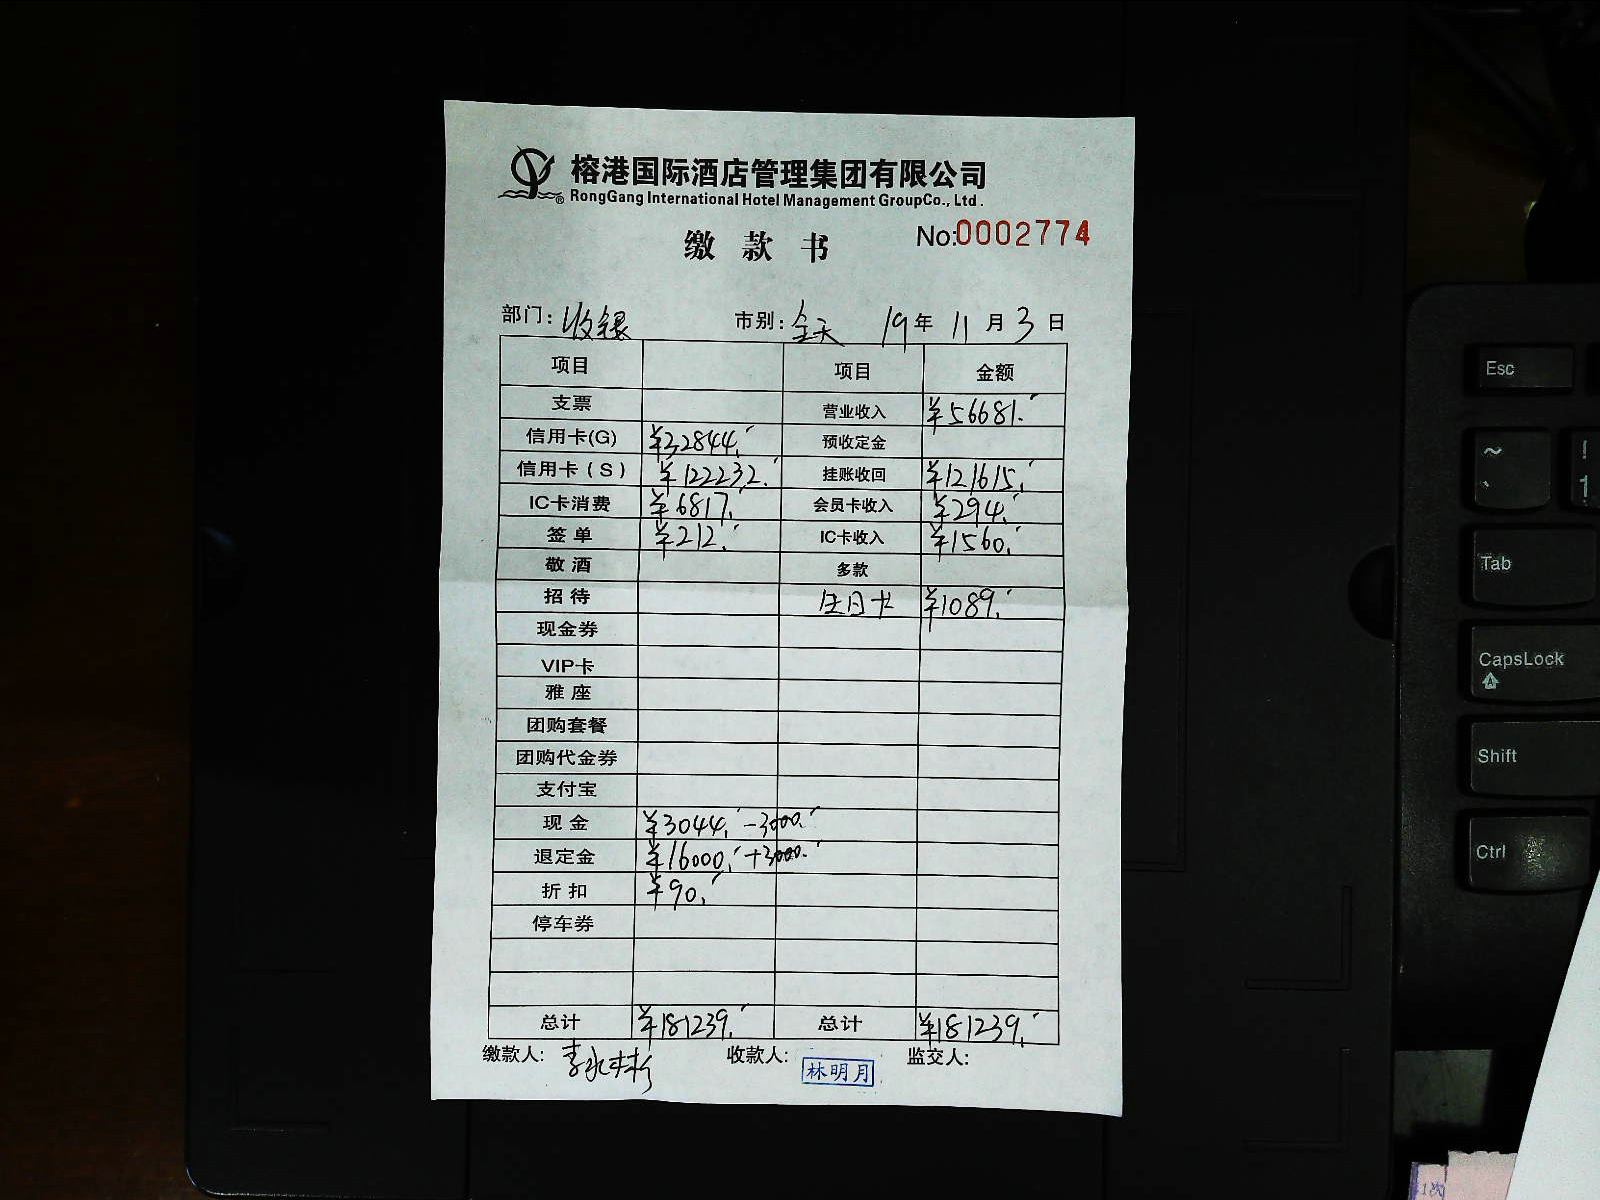 榕港国际酒店管理集团有限公司
RongGang International Hotel Management GroupCo., Ltd.
缴款书 No:0002774
部门: 收银 市别: 全天 19年 11月 3日
项目 项目 金额
支票 营业收入 ¥56681.
信用卡(G) ¥32844. 预收定金
信用卡(S) ¥122232. 挂账收回 ¥121615.
IC卡消费 ¥6817. 会员卡收入 ¥294.
签单 ¥212. IC卡收入 ¥1560.
敬酒 多款
招待 生日卡 ¥1089.
现金券
VIP卡
雅座
团购套餐
团购代金券
支付宝
现金 ¥3044. -3000.
退定金 ¥16000. +3000.
折扣 ¥90.
停车券
总计 ¥181239. 总计 ¥181239.
缴款人: 李永彬 收款人: 林明月 监交人:
Esc
~
`
!
1
Tab
CapsLock
Shift
Ctrl